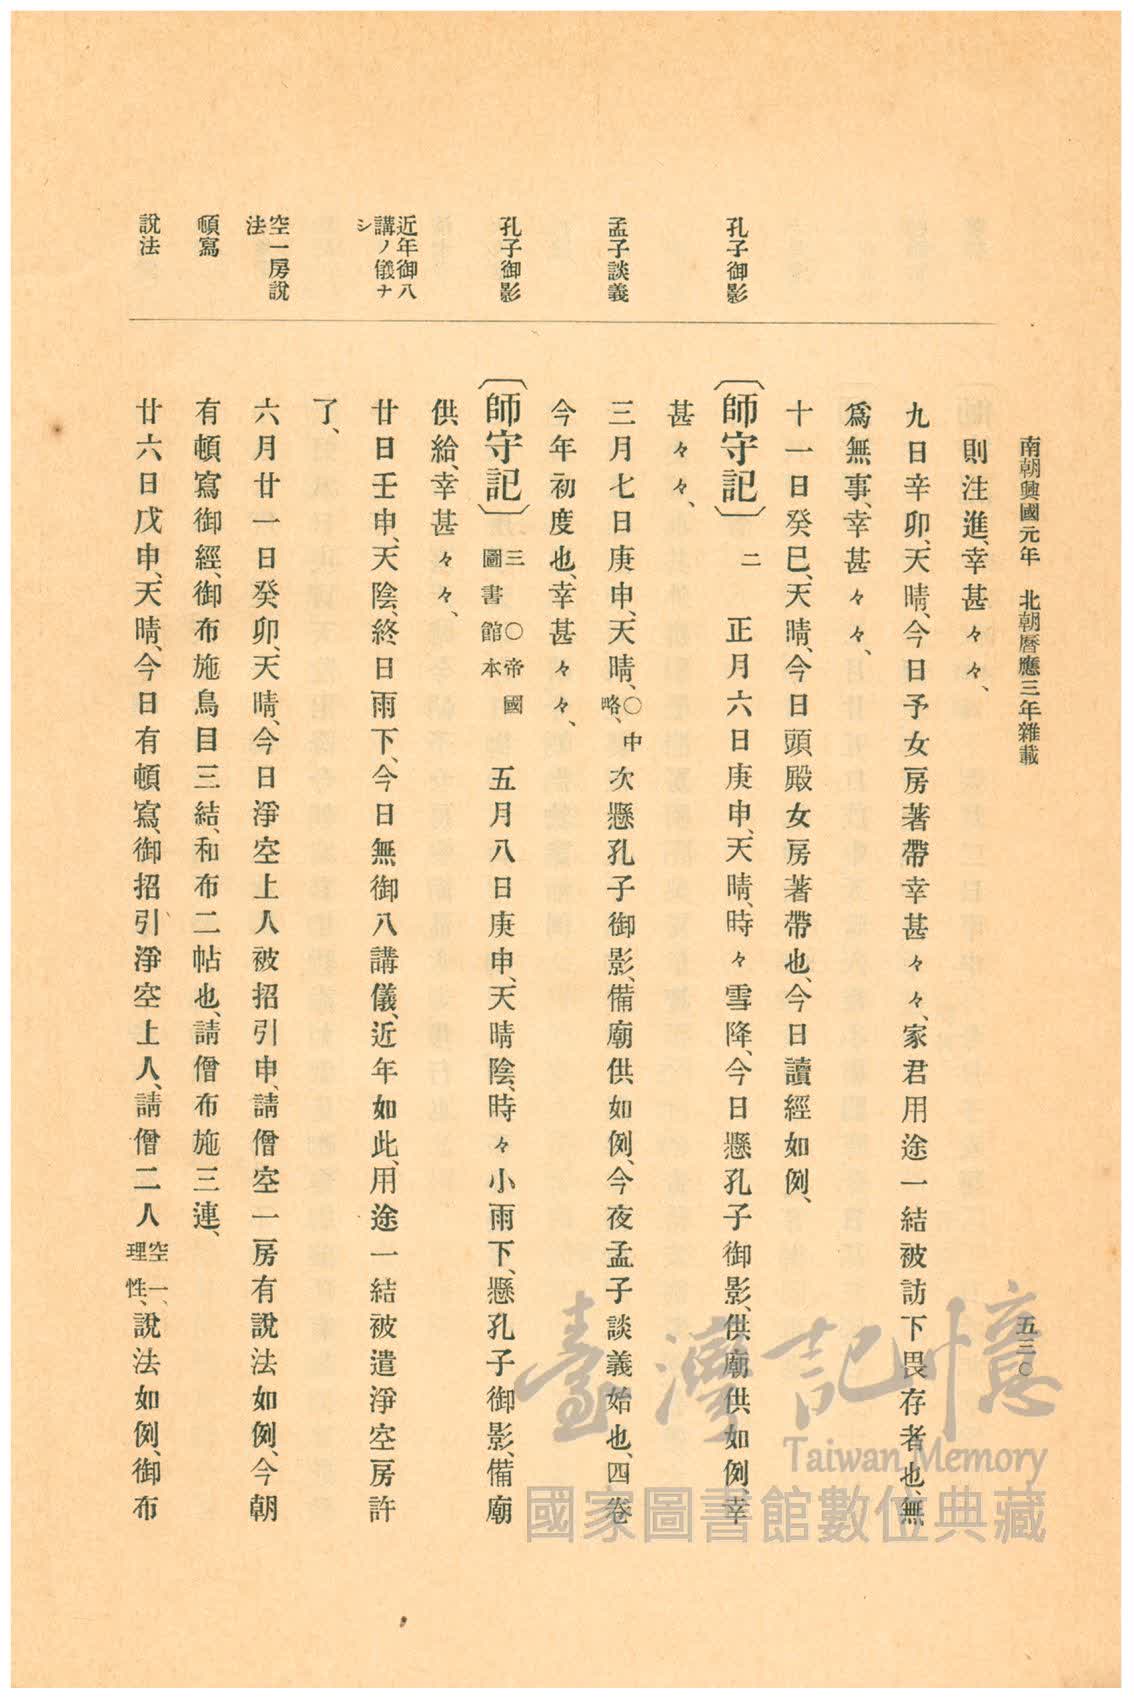 南朝興國元年　北朝曆應三年雜載
五三〇
則注進、幸甚々々、
九日辛卯、天晴、今日予女房著帶幸甚々々、家君用途一結被訪下畏存者也、無
爲無事、幸甚々々、
十一日癸巳、天晴、今日頭殿女房著帶也、今日讀經如例、
孔子御影
〔師守記〕二　正月六日庚申、天晴、時々雪降、今日懸孔子御影、供廟供如例、幸
甚々々、
孟子談義
三月七日庚申、天晴、〇中略、次懸孔子御影、備廟供如例、今夜孟子談義始也、四卷
今年初度也、幸甚々々、
孔子御影
〔師守記〕三〇帝國圖書館本　五月八日庚申、天晴陰、時々小雨下、懸孔子御影、備廟
供給、幸甚々々、
近年御八講ノ儀ナシ
廿日壬申、天陰、終日雨下、今日無御八講儀、近年如此、用途一結被遣淨空房許
了、
空一房說法
六月廿一日癸卯、天晴、今日淨空上人被招引申、請僧空一房有說法如例、今朝
頓寫
有頓寫御經、御布施鳥目三結、和布二帖也、請僧布施三連、
說法
廿六日戊申、天晴、今日有頓寫、御招引淨空上人、請僧二人空一、理性、說法如例、御布
臺灣記憶
Taiwan Memory
國家圖書館數位典藏